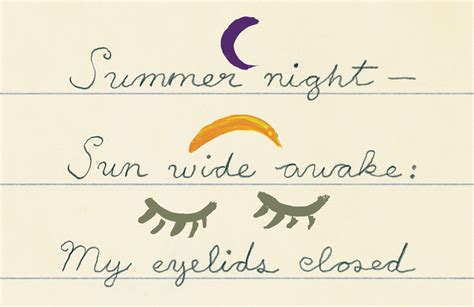 Summer night —
Sun wide awake:
My eyelids closed